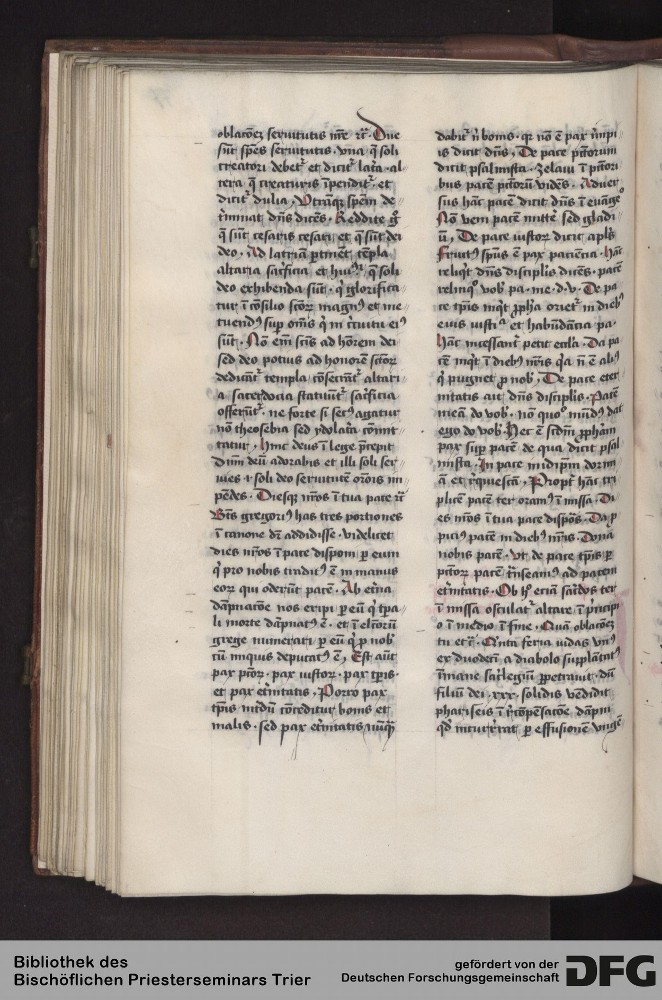 oblacōeꝫ seruitutis nr̄e ꝛc̄. Due
sūt sp̄es seruitutis. vna q̄ soli
creatori debet᷑ et dicit᷑ lat͛a. al
tera q̄ creaturis īpendit᷑. et
dicit᷑ dulia. Vtramqꝫ sp̄em de
t͛minat dn̄s dicēs. Reddite g͛
q̄ sūt cesaris cesari et q̄ sūt dei
deo. Ad latriā ꝑtinēt tēpla
altaria sac͛ficia et hui᷒mōi q̄ soli
deo exhibenda sūt. q͛ glorifica
tur ī cōsilio scōꝝ magn᷒ et me
tuend᷒ sup͛ om̄s q͛ in c͛cuitu ei᷒
sūt. Nō em̄ scīs ad hōrem dei
sed deo potius ad honorē scōꝝ
dedicāt᷑ templa cōsecrāt᷑ altari
a sacerdocia statuūt᷑ sac͛ficia
offerūt᷑. ne forte si sec᷒ agatur
nō theosebia sed ydolat͛a cōmit
tatur. hinc deus ī lege p̄cepit
Dn̄m deū adorabis et illi soli ser
uies ⁊ soli deo seruitutē
pēdes. Diesqꝫ nr̄os ī tua pace ꝛc̄
Btūs gregori᷒ has tres portiones
ī canone dr̄ addidisse. videlicet
dies nr̄os ī pace disponi ꝑ eum
q͛ pro nobis tradit᷒ ē in manus
eoꝝ qui oderūt pacē. Ab et͛na
dāpnatōe nos eripi ꝑ eū q͛ tp̄a
li morte dāpnat᷒ ē. et ī el̄coꝝ
grege numerari ꝑ eū q͛ p nob᷒
cū iniquis deputat᷒ ē. Est aūt
pax pc̄oꝝ. pax iustoꝝ. pax tp̄is.
et pax et͛nitatis. Porro pax
tp̄is int͛dū cōceditur bonis et
malis. sed pax et͛nitatis nūq̄
dabit᷑ n̄ bonis. qꝛ nō ē pax īmpi
is dicit dn̄s. De pace pc̄torum
dicit psalmista. Zelaui ī pc̄cori
bus pacē pc̄torū vidēs. Aduer
sus hāc pacē dicit dn̄s ī euāge᷒
Nō veni pacē mitt͛e sed gladi
ū. De pace iustoꝝ dicit apl̄s
fruct᷒ sp̄us ē pax paciēcia. hāc
reliq͛t dn̄s discipl̄is dicēs. pacē
relinq᷒ vob᷒ pa. me. d. v. De pa
ce tp̄is inq͛t ꝓph̄a oriet᷑ in dieb᷒
eius iusti͛a et habūdācia pa.
hāc incessant͛ petit eccl̄a. Da pa
cē inq͛t ī dieb᷒ nr̄is q͛a n̄ ē ali᷒
q͛ pugnet ꝓ nob᷒. De pace eter
nitatis ait dn̄s discipl̄is. Pacē
meā do vob᷒. nō quō mūd᷒ dat
ego do vob᷒. Hec ē scd̄m ꝓph̄am
pax sup͛ pacē de qua dicit psal
mista. In pace in idip̄m dormi
ā et req͛escā. Propt͛ hāc t͛i
plicē pacē ter oram᷒ ī missa. Di
es nr̄os ī tua pace dispōs. Da ꝓ
pici᷒ pacē in dieb᷒ nr̄is. Dona
nobis pacē. vt de pace tp̄is ꝑ
pc̄toꝝ pacē t͛nseam᷒ ad pacem
et͛nitatis. Ob h᷒ eciā sac͛dos ter
ī missa osculat᷑ altare ī p͛ncipi
o ī medio ī fine. Quā oblacōeꝫ
tu etc̄. Q͛nta feria iudas vn᷒
ex duodeci a diabolo supplātat᷒
īmane sac͛legiū ꝑpetrauit. dū
filiū dei .xxx. solidis vendidit
phariseis ī recōpēsatōe dāpni
qd̄ incurrerat ꝑ effusionē vngē
Bibliothek des
Bischöflichen Priesterseminars Trier
gefördert von der
Deutschen Forschungsgemeinschaft
DFG